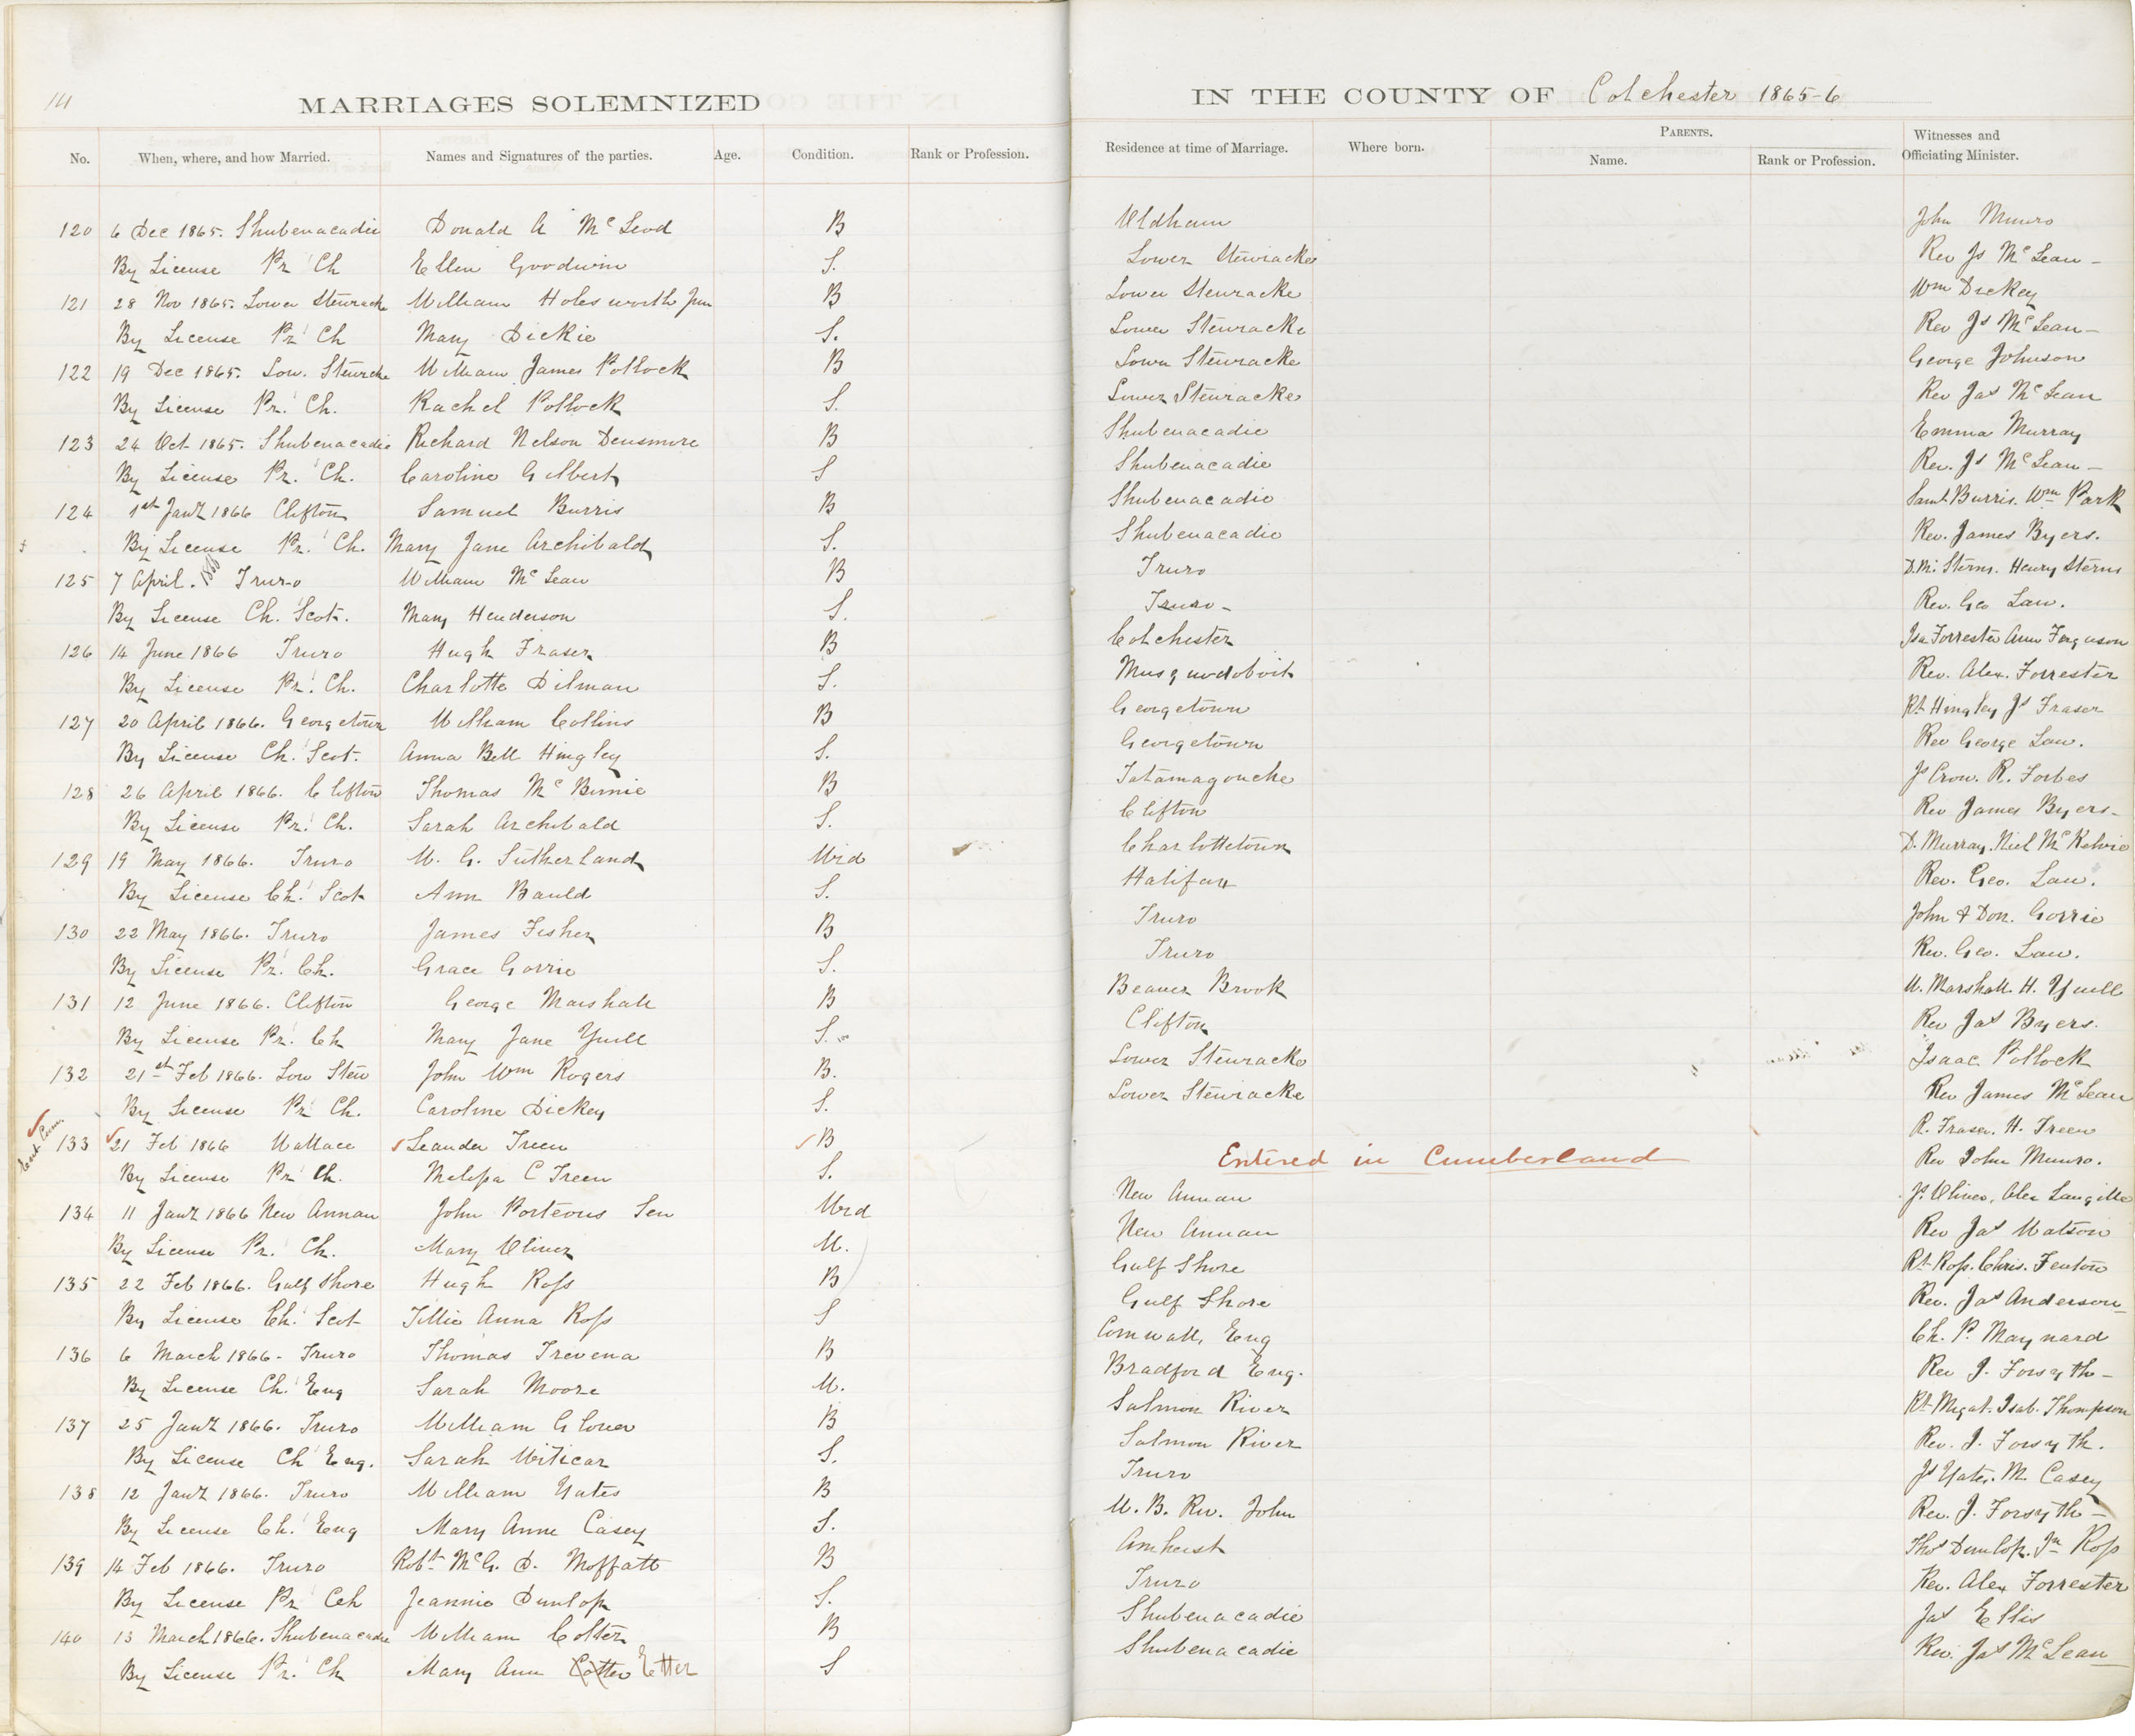 141
MARRIAGES SOLEMNIZED IN THE COUNTY OF Colchester 1865-6
No. When, where, and how Married. Names and Signatures of the parties. Age. Condition. Rank or Profession. Residence at time of Marriage. Where born. PARENTS. Name. Rank or Profession. Witnesses and Officiating Minister.
120 6 Dec 1865. Shubenacadie Donald A McLeod B Oldham John Munro
By License Pr Ch Ellen Goodwin S. Lower Stewiacke Rev Js McLean -
121 28 Nov 1865. Lower Stewiacke William Holesworth Jun B Lower Stewiacke Wm Dickey
By License Pr Ch Mary Dickie S. Lower Stewiacke Rev Js McLean -
122 19 Dec 1865. Low. Stewcke William James Pollock B Lower Stewiacke George Johnson
By License Pr. Ch. Rachel Pollock S. Lower Stewiacke Rev Jas McLean
123 24 Oct 1865. Shubenacadie Richard Nelson Densmore B Shubenacadie Emma Murray
By License Pr. Ch. Caroline Gilbert S Shubenacadie Rev. Js McLean -
124 1st Jany 1866 Clifton Samuel Burris B Shubenacadie Saml Burris. Wm Park
By License Pr. Ch. Mary Jane Archibald S. Shubenacadie Rev. James Byers.
125 7 April. 1866 Truro William McLean B Truro D. M. Sterns. Henry Sterns
By License Ch. Scot. Mary Henderson S. Truro - Rev. Geo Law.
126 14 June 1866 Truro Hugh Fraser B Colchester Isa Forrester Ann Ferguson
By License Pr. Ch. Charlotte Dilman S. Musquodoboit Rev. Alex. Forrester
127 20 April 1866. Georgetown William Collins B Georgetown Rt Hingley Js Fraser
By License Ch. Scot. Anna Bell Hingley S. Georgetown Rev George Law.
128 26 April 1866. Clifton Thomas McBurnie B Tatamagouche Js Crow. R. Forbes
By License Pr. Ch. Sarah Archibald S. Clifton Rev James Byers -
129 19 May 1866. Truro W. G. Sutherland Wid Charlottetown D. Murray. Niel McKelvie
By License Ch. Scot Ann Bauld S. Halifax Rev. Geo. Law.
130 22 May 1866. Truro James Fisher B Truro John & Don. Gorrie
By License Pr. Ch. Grace Gorrie S. Truro Rev. Geo. Law.
131 12 June 1866. Clifton George Marshall B Beaver Brook W. Marshall. H. Yuill
By License Pr. Ch Mary Jane Yuill S. Clifton Rev Jas Byers.
132 21st Feb 1866. Low Stew John Wm Rogers B. Lower Stewiacke Isaac Pollock
By License Pr Ch. Caroline Dickey S. Lower Stewiacke Rev James McLean
Ent Cum. 133 21 Feb 1866 Wallace Leander Treen B R. Fraser. H. Treen
By License Pr Ch. Melissa C Treen S. Entered in Cumberland Rev John Munro.
134 11 Jany 1866 New Annan John Porteous Sen Wid New Annan Js Oliver, Alex Langille
By License Pr. Ch. Mary Oliver W. New Annan Rev Jas Watson
135 22 Feb 1866. Gulf Shore Hugh Ross B Gulf Shore Rt Ross. Chris. Fenton
By License Ch. Scot Tillie Anna Ross S Gulf Shore Rev. Jas Anderson
136 6 March 1866 - Truro Thomas Trevena B Cornwall, Eng Ch. P. Maynard
By License Ch. Eng Sarah Moore W. Bradford Eng. Rev J. Forsyth -
137 25 Jany 1866. Truro William Glover B Salmon River Rt Mgat. Isab. Thompson
By License Ch Eng. Sarah Witicar S. Salmon River Rev. J. Forsyth.
138 12 Jany 1866. Truro William Yates B Truro Js Yates. M. Casey
By License Ch. Eng Mary Anne Casey S. W. B. Riv. John Rev. J. Forsyth -
139 14 Feb 1866. Truro Robt McG. D. Moffatt B Amherst Thos Dunlop. Jn Ross
By License Pr Ch Jeannie Dunlop S. Truro Rev. Alex Forrester
140 13 March 1866. Shubenacadie William Colter B Shubenacadie Jas Ellis
By License Pr. Ch Mary Ann Cotter Etter S Shubenacadie Rev. Jas McLean